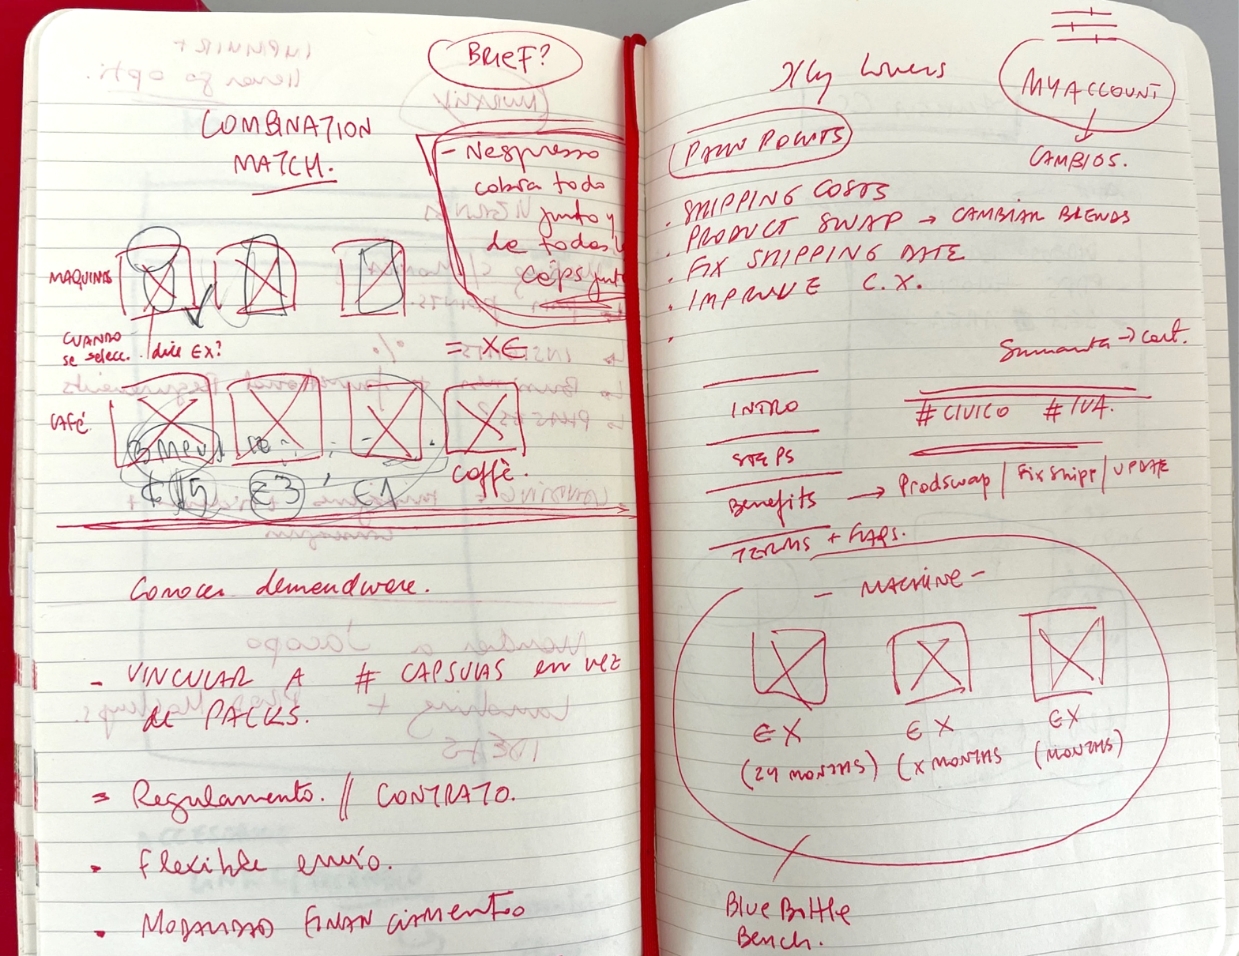 BRIEF?
COMBINATION
MATCH.
- Nespresso
cobra todo
junto y
de todas
ceps junt
MAQUINAS
CUANDO
se selecc. dice €X?
= X€
CAFÉ
3 meu
€15 €3 , €1
caffè.
Conocer demandware.
- VINCULAR A # CAPSULAS en vez
de PACKS.
= Regulamento. // CONTRATO.
• flexible envío.
• MODALIDAD FINANCIAMENTO
Illy Lovers
MY ACCOUNT
CAMBIOS.
PAIN POINTS
. SHIPPING COSTS
. PRODUCT SWAP → CAMBIAR BLENDS
. FIX SHIPPING DATE
. IMPROVE C.X.
.
→ cart.
INTRO
# CIVICO # IVA.
STEPS
Benefits → Prodswap / Fix Shipp / UPDATE
TERMS + FAQS.
- MACHINE -
€X €X €X
(24 MONTHS) (X MONTHS (MONTHS)
Blue Bottle
Bench.